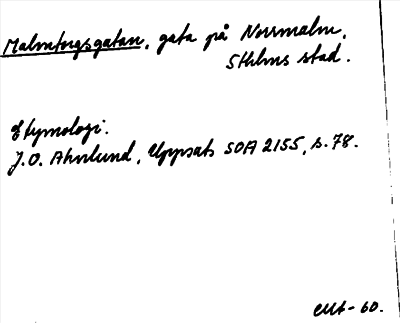 Malmtorgsgatan, gata på Norrmalm,
Sthlms stad.
Etymologi.
J.O. Ahnlund, Uppsats SOA 2155, s. 78.
-60.